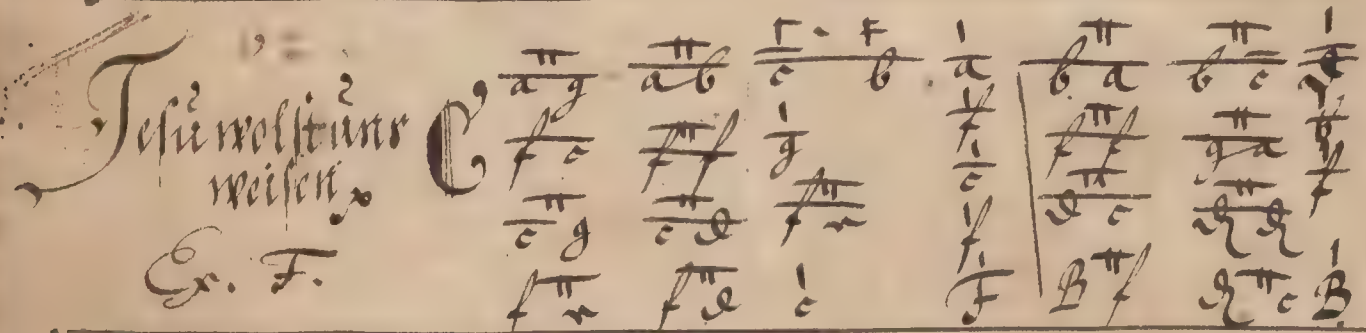 Jesu wolst uns
weisen
Ex. F.
C a g a b c b a b a b c
f c f f g f f f g a
c g c d f e c d c f
f e f d c f F B f c B